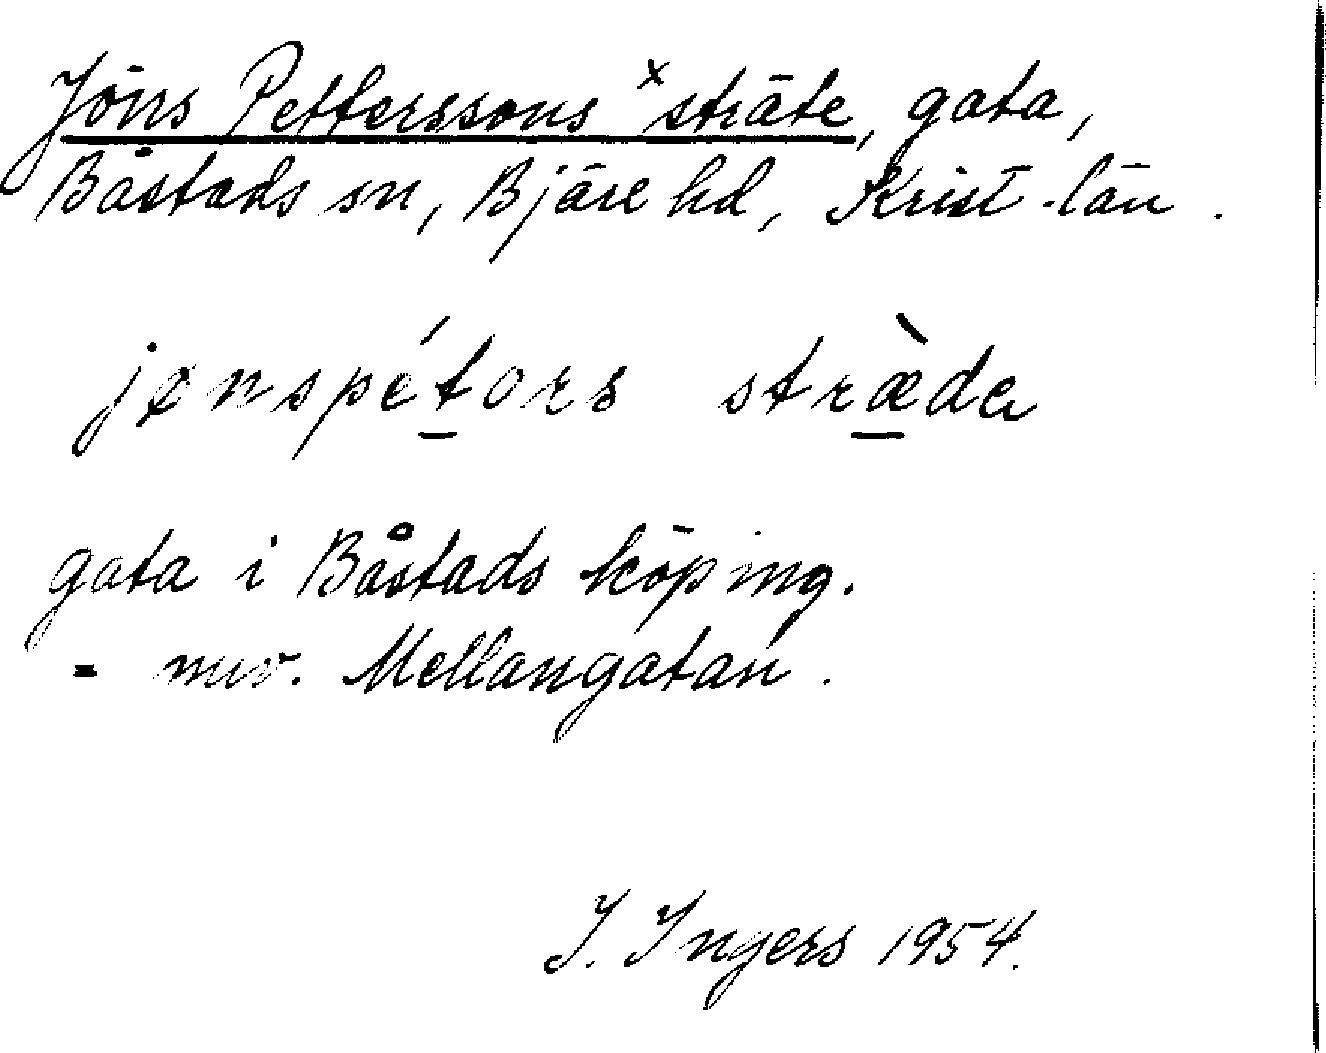 Jöns Petterssons ˣsträte, gata,
Båstads sn, Bjäre hd, Krist. län.
jønspétors strædɑ
gata i Båstads köping.
- nuv. Mellangatan.
I. Ingers 1954.